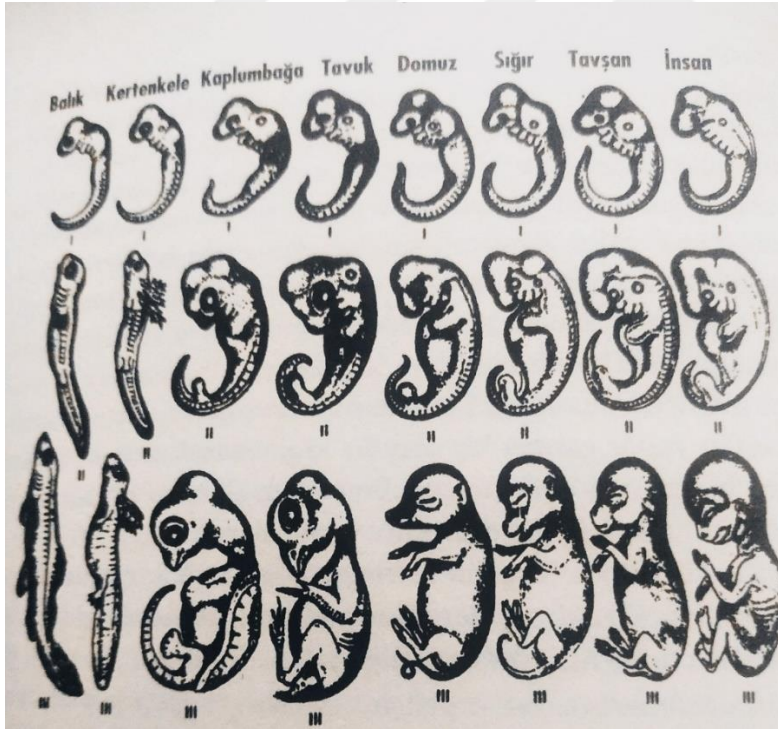 Balık Kertenkele Kaplumbağa Tavuk Domuz Sığır Tavşan İnsan
I I I I I I I I
II II II II II II II II
III III III III III III III III